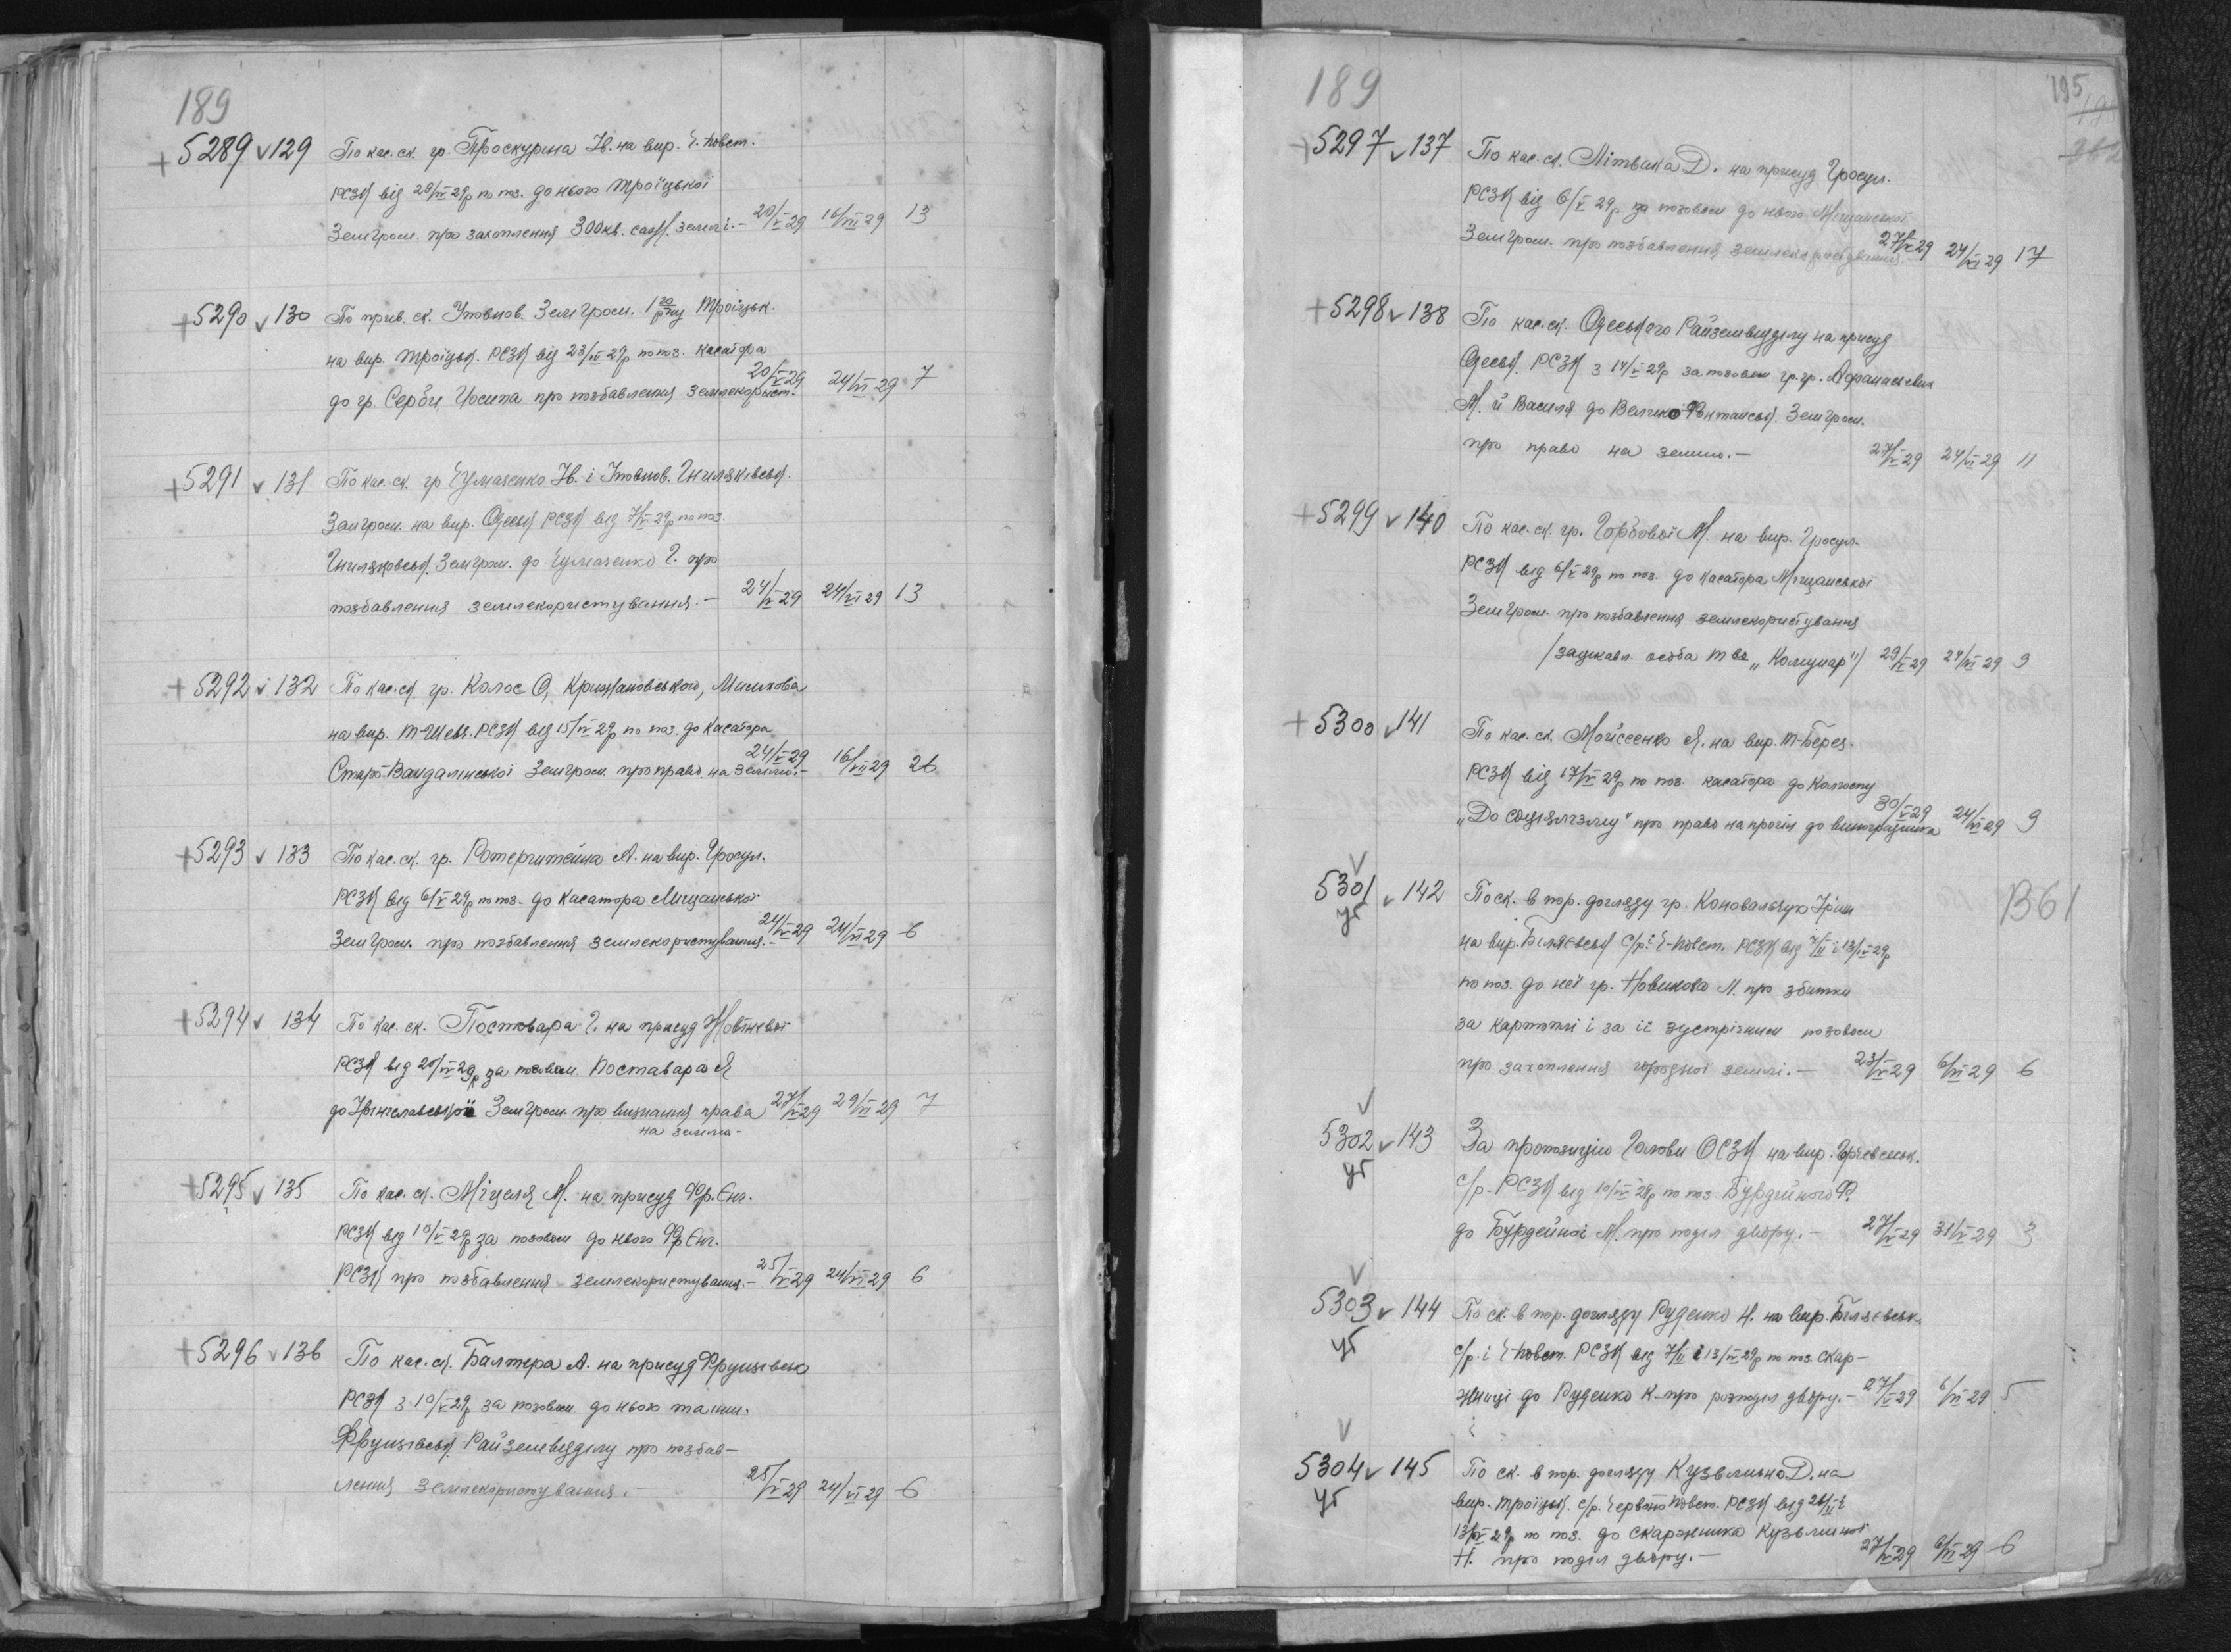 189
+ 5289 v 129 По кас. ск. гр. Проскурина Ів. на вир. Ч. Повст.
РСЗК від 29/IV 29р по поз. до нього Троїцької
Земгром. про захоплення 300 кв. саж. землі. – 20/V 29 16/VII 29 13
+ 5290 v 130 По прив. ск. Уповнов. Земгром. Троїцьк.
на вир. Троїцьк. РСЗК від 23/IV 29р по поз. касатора
до гр. Серби Йосипа про позбавлення землекорист. 20/V 29 24/VI 29 7
+ 5291 v 131 По кас. ск. гр Чумаченко Ів. і Уповнов. Гниляківськ.
Земгром. на вир. Одеськ РСЗК від 7/V 29р по поз.
Гниляковськ. Земгром. до Чумаченко Г. про
позбавлення землекористування. – 24/V 29 24/VI 29 13
+ 5292 v 132 По кас. ск. гр. Колос О, Крижановського,
на вир. Т-Шевч. РСЗК від 15/IV 29р по поз. до касатора
Старо-Вандалинської Земгром. про право на землю. – 24/V 29 16/VII 29 26
+ 5293 v 133 По кас. ск. гр. Ротерштейна А. на вир. Гросул.
РСЗК від 6/V 29р по поз. до касатора Міщанської
Земгром. про позбавлення землекористування. – 24/V 29 24/VI 29 6
+ 5294 v 134 По кас. ск. Постовара Г. на присуд Жовтневої
РСЗК від 20/IV 29р за позовом Поставара Я
до Земгром. про визнання права 27/V 29 29/VI 29 7
на землю –
+ 5295 v 135 По кас. ск. Міцеля М. на присуд Фр. Енг.
РСЗК від 10/V 29р за позовом до нього Фр Енг.
РСЗК про позбавлення землекористування. – 25/V 29 24/VI 29 6
+ 5296 v 136 По кас. ск. Балтера А. на присуд Фрунзівськ
РСЗК з 10/V 29р за позовом до нього та инш.
Фрунзівськ. Райземвідділу про позбав–
лення землекористування. – 25/V 29 24/VI 29 6
189
195
+ 5297 v 137 По кас. ск. Літвака Д. на присуд Гросул.
РСЗК від 6/V 29р за позовом до нього Міщанської
Земгром. про позбавлення землекористування. – 27/V 29 24/VI 29 17
+ 5298 v 138 По кас. ск. Одеського Райземвідділу на присуд
Одеськ. РСЗК з 14/V 29р за позовом гр. гр. Афанасьєвих
М. й Василя до Велико Фонтанськ. Земгром.
про право на землю. – 27/V 29 24/VI 29 11
+ 5299 v 140 По кас. ск. гр. Горбової М. на вир. Гросул.
РСЗК від 6/V 29р по поз. до касатора Міщанської
Земгром. про позбавлення землекористування
/зацікавл. особа т-во „Комунар"/ 29/V 29 24/VI 29 9
+ 5300 v 141 По кас. ск. Мойсеенко Я. на вир. Т-Берез.
РСЗК від 17/IV 29р по поз. касатора до Колгоспу
„До соціялізму" про право на проїзд до виноградника 30/V 29 24/VI 29 9
v
5301 v 142 По ск. в пор. догляду гр. Коновальчук Ірини
В61
уб
на вир. Біляєвськ с/р. і Ч-Повст. РСЗК від 7/II і 13/IV 29р
по поз. до неї гр. Новикова М. про збитки
за картоплі і за її зустрізним позовом
про захоплення городної землі. – 23/V 29 6/VI 29 6
v
5302 v 143 За пропозицією Голови ОСЗК на вир.
уб
с/р. РСЗК від 10/IV 28р по поз Бурдейного Ф.
до Бурдейної М. про поділ двору. – 27/V 29 31/V 29 3
v
5303 v 144 По ск. в пор. догляду Руденко Н. на вир. Біляєвськ.
уб
с/р. і Ч-Повст. РСЗК від 7/II і 13/IV 29р по поз. скар–
жниці до Руденко К. про розподіл двору. – 27/V 29 6/VI 29 5
v
5304 v 145 По ск. в пор. догляду Кузьміна Д. на
уб
вир. Троїцьк. с/р. Червоно Повст. РСЗК від 26/II і
13/IV 29р по поз. до скаржника Кузьминої
Н. про поділ двору. – 27/V 29 6/VI 29 6